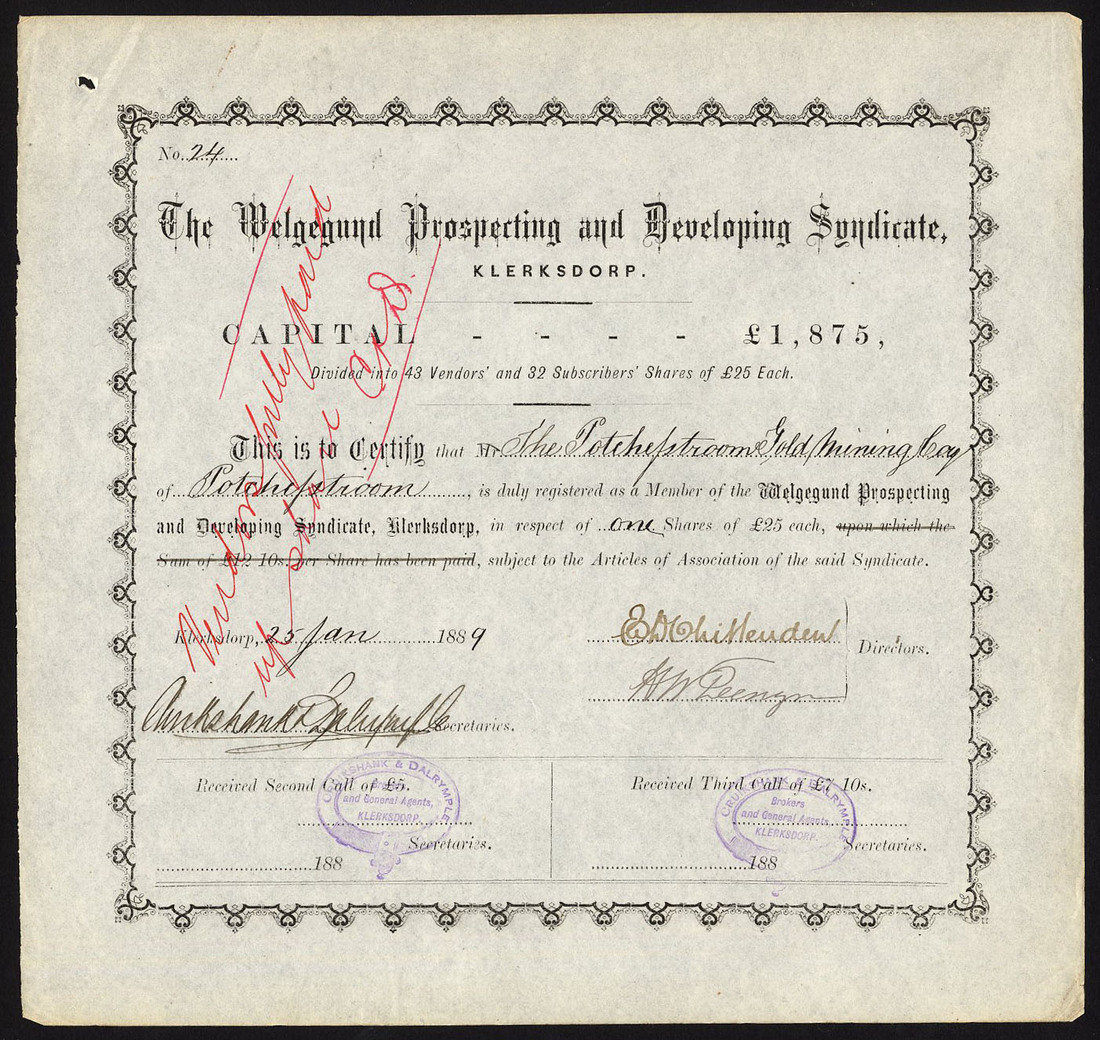 No. 24
The Welgegund Prospecting and Developing Syndicate,
KLERKSDORP.
CAPITAL - - - - £1,875,
Divided into 43 Vendors' and 32 Subscribers' Shares of £25 Each.
This is to Certify that Mr The Potchefstroom Gold Mining Coy
of Potchefstroom, is duly registered as a Member of the Welgegund Prospecting
and Developing Syndicate, Klerksdorp, in respect of one Shares of £25 each, upon which the
Sum of £12 10s. per Share has been paid, subject to the Articles of Association of the said Syndicate.
Vendors fully paid
up share C & D.
Klerksdorp, 25 Jan 1889
E D Chittenden
Directors.
H W
Cruikshank & Dalrymple Secretaries.
Received Second Call of £5.
Secretaries.
188
CRUIKSHANK & DALRYMPLE
Brokers
and General Agents,
KLERKSDORP.
Received Third Call of £7 10s.
Secretaries.
188
CRUIKSHANK & DALRYMPLE
Brokers
and General Agents,
KLERKSDORP.